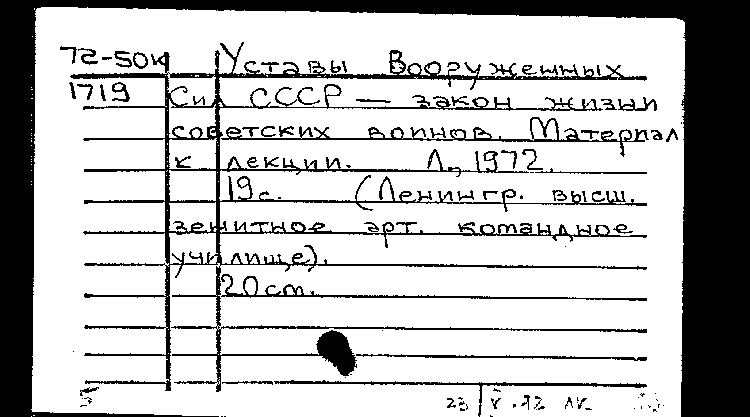 72-50к Уставы Вооруженных
1719 Сил СССР — закон жизни
советских воинов. Материал
к лекции. Л., 1972.
19с. (Ленингр. высш.
зенитное арт. командное
училище).
20 cm.
23 V.72 ЛК.